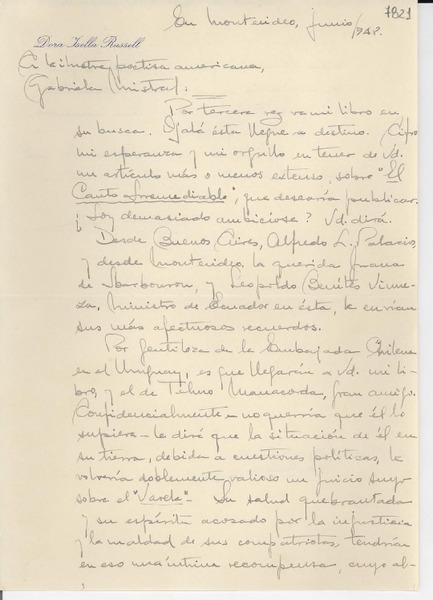 7821
En Montevideo, junio/948.
Dora Isella Russell
A la ilustre poetisa americana,
Gabriela Mistral:
Por tercera vez va mi libro en
su busca. Ojalá ésta llegue a destino. Cifro
mi esperanza y mi orgullo en tener de Vd.
un artículo más o menos extenso, sobre "El
Canto Irremediable", que desearía publicar.
¿Soy demasiado ambiciosa? Vd. dirá.
Desde Buenos Aires, Alfredo L. Palacios,
y desde Montevideo, la querida Juana
de Ibarbourou, y Leopoldo Benítes Vinue-
za, Ministro de Ecuador en ésta, le envían
sus más afectuosos recuerdos.
Por gentileza de la Embajada Chilena
en el Uruguay, es que llegarán a Vd. mi li-
bro, y el de Telmo Manacorda, gran amigo.
Confidencialmente - no querría que él lo
supiera - le diré que la situación de él en
su tierra, debida a cuestiones políticas, le
volvería doblemente valioso un juicio suyo
sobre el "Varela". Su salud quebrantada
y su espíritu acosado por la injusticia
y la maldad de sus compatriotas, tendrían
en eso una íntima recompensa, cuyo al-